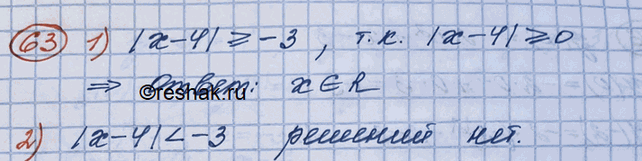 63 1) |x-4| ≥ -3, т.к. |x-4| ≥ 0
⇒ Ответ: x ∈ R
©reshak.ru
2) |x-4| < -3 решений нет.